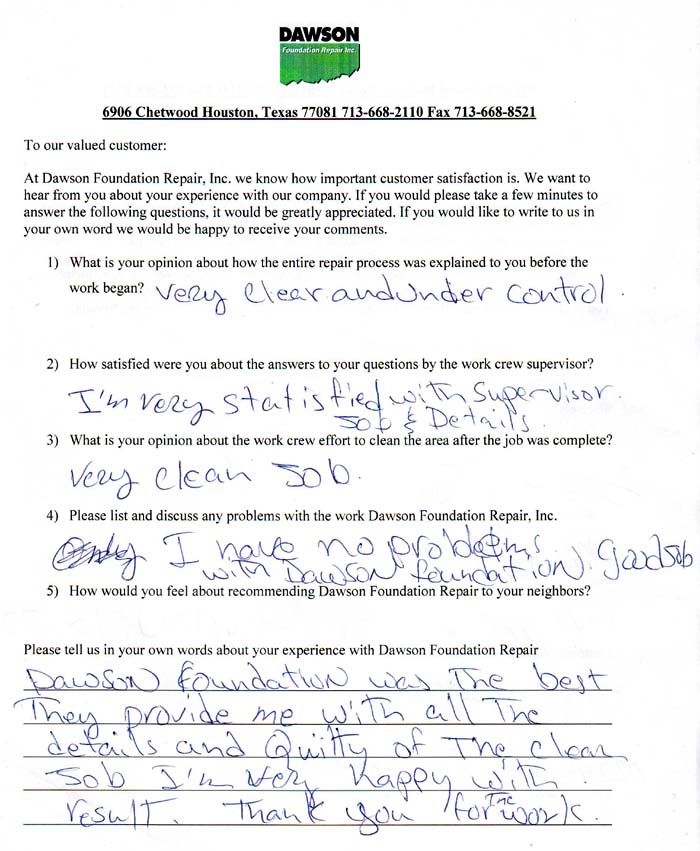 DAWSON
Foundation Repair Inc.
6906 Chetwood Houston, Texas 77081 713-668-2110 Fax 713-668-8521
To our valued customer:
At Dawson Foundation Repair, Inc. we know how important customer satisfaction is. We want to
hear from you about your experience with our company. If you would please take a few minutes to
answer the following questions, it would be greatly appreciated. If you would like to write to us in
your own word we would be happy to receive your comments.
1) What is your opinion about how the entire repair process was explained to you before the
work began? very clear and under control.
2) How satisfied were you about the answers to your questions by the work crew supervisor?
I'm very statisfied with supervisor.
Job & Details.
3) What is your opinion about the work crew effort to clean the area after the job was complete?
Very clean Job.
4) Please list and discuss any problems with the work Dawson Foundation Repair, Inc.
I have no problems
with Dawson foundation. good Job
5) How would you feel about recommending Dawson Foundation Repair to your neighbors?
Please tell us in your own words about your experience with Dawson Foundation Repair
Dawson foundation was The best
They provide me with all The
details and Quilty of The clean
Job I'm very happy with
result. Thank you for The work.